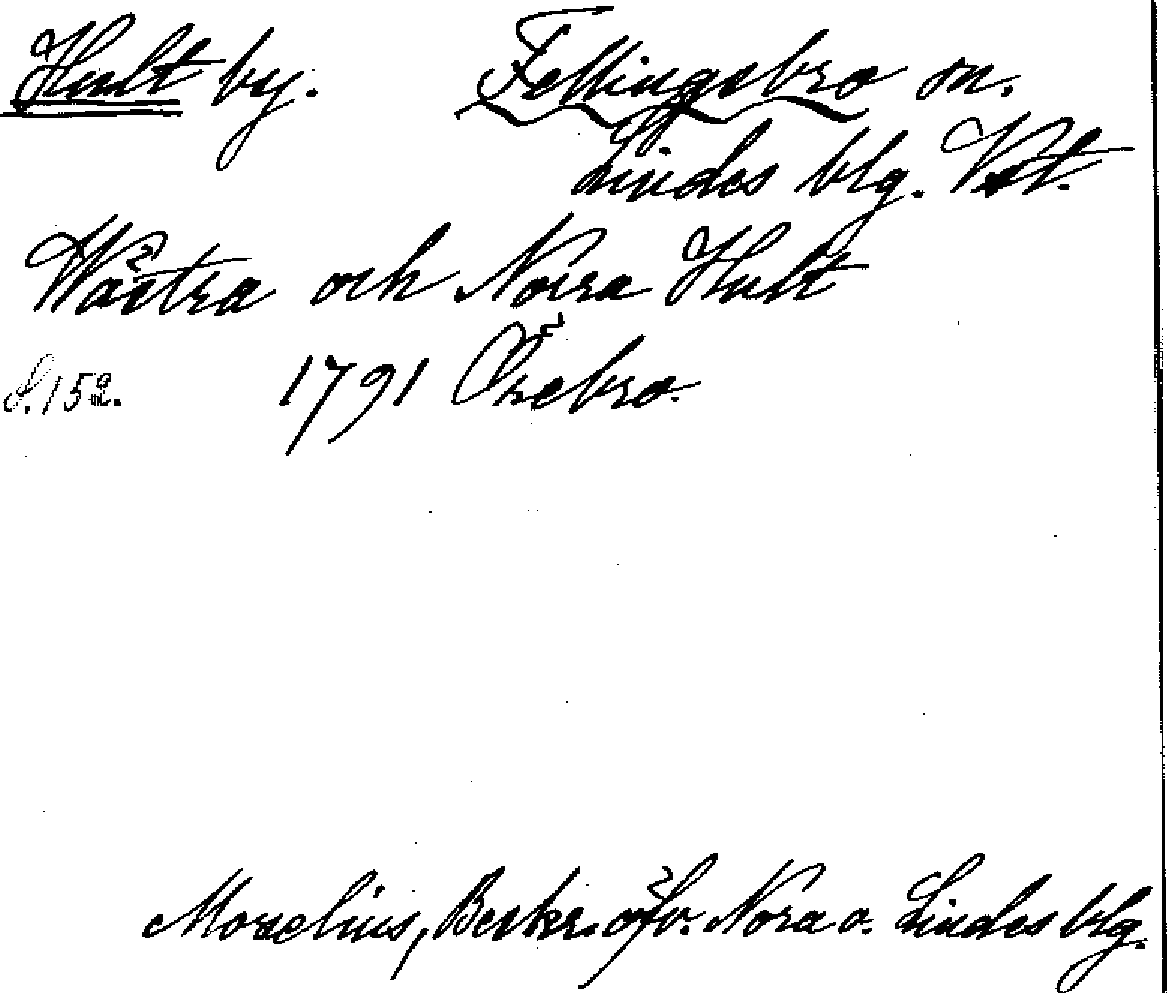 Hult by. Fellingsbro sn.
Lindes blg. Vstm.
Wästra och Norra Hult
S. 152. 1791 Örebro.
Morelius, Beskr. öfv. Nora o. Lindes blg.